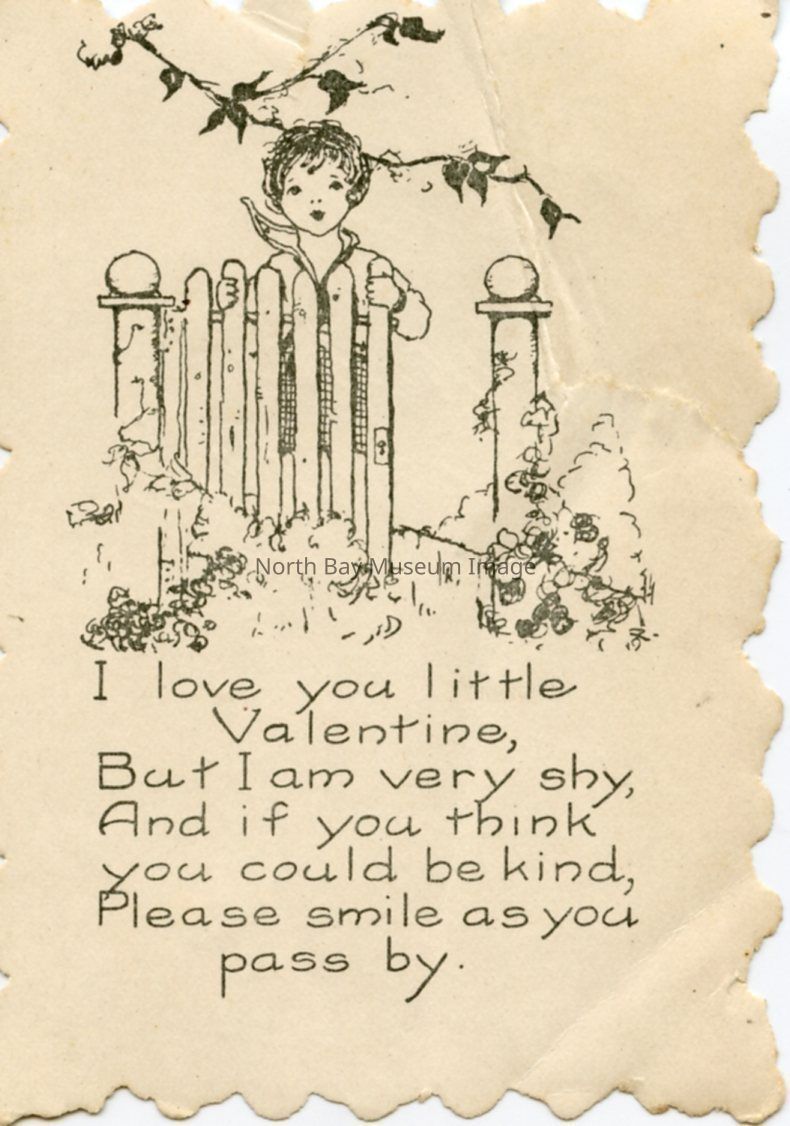 North Bay Museum Image
I love you little
Valentine,
But I am very shy,
And if you think
you could be kind,
Please smile as you
pass by.